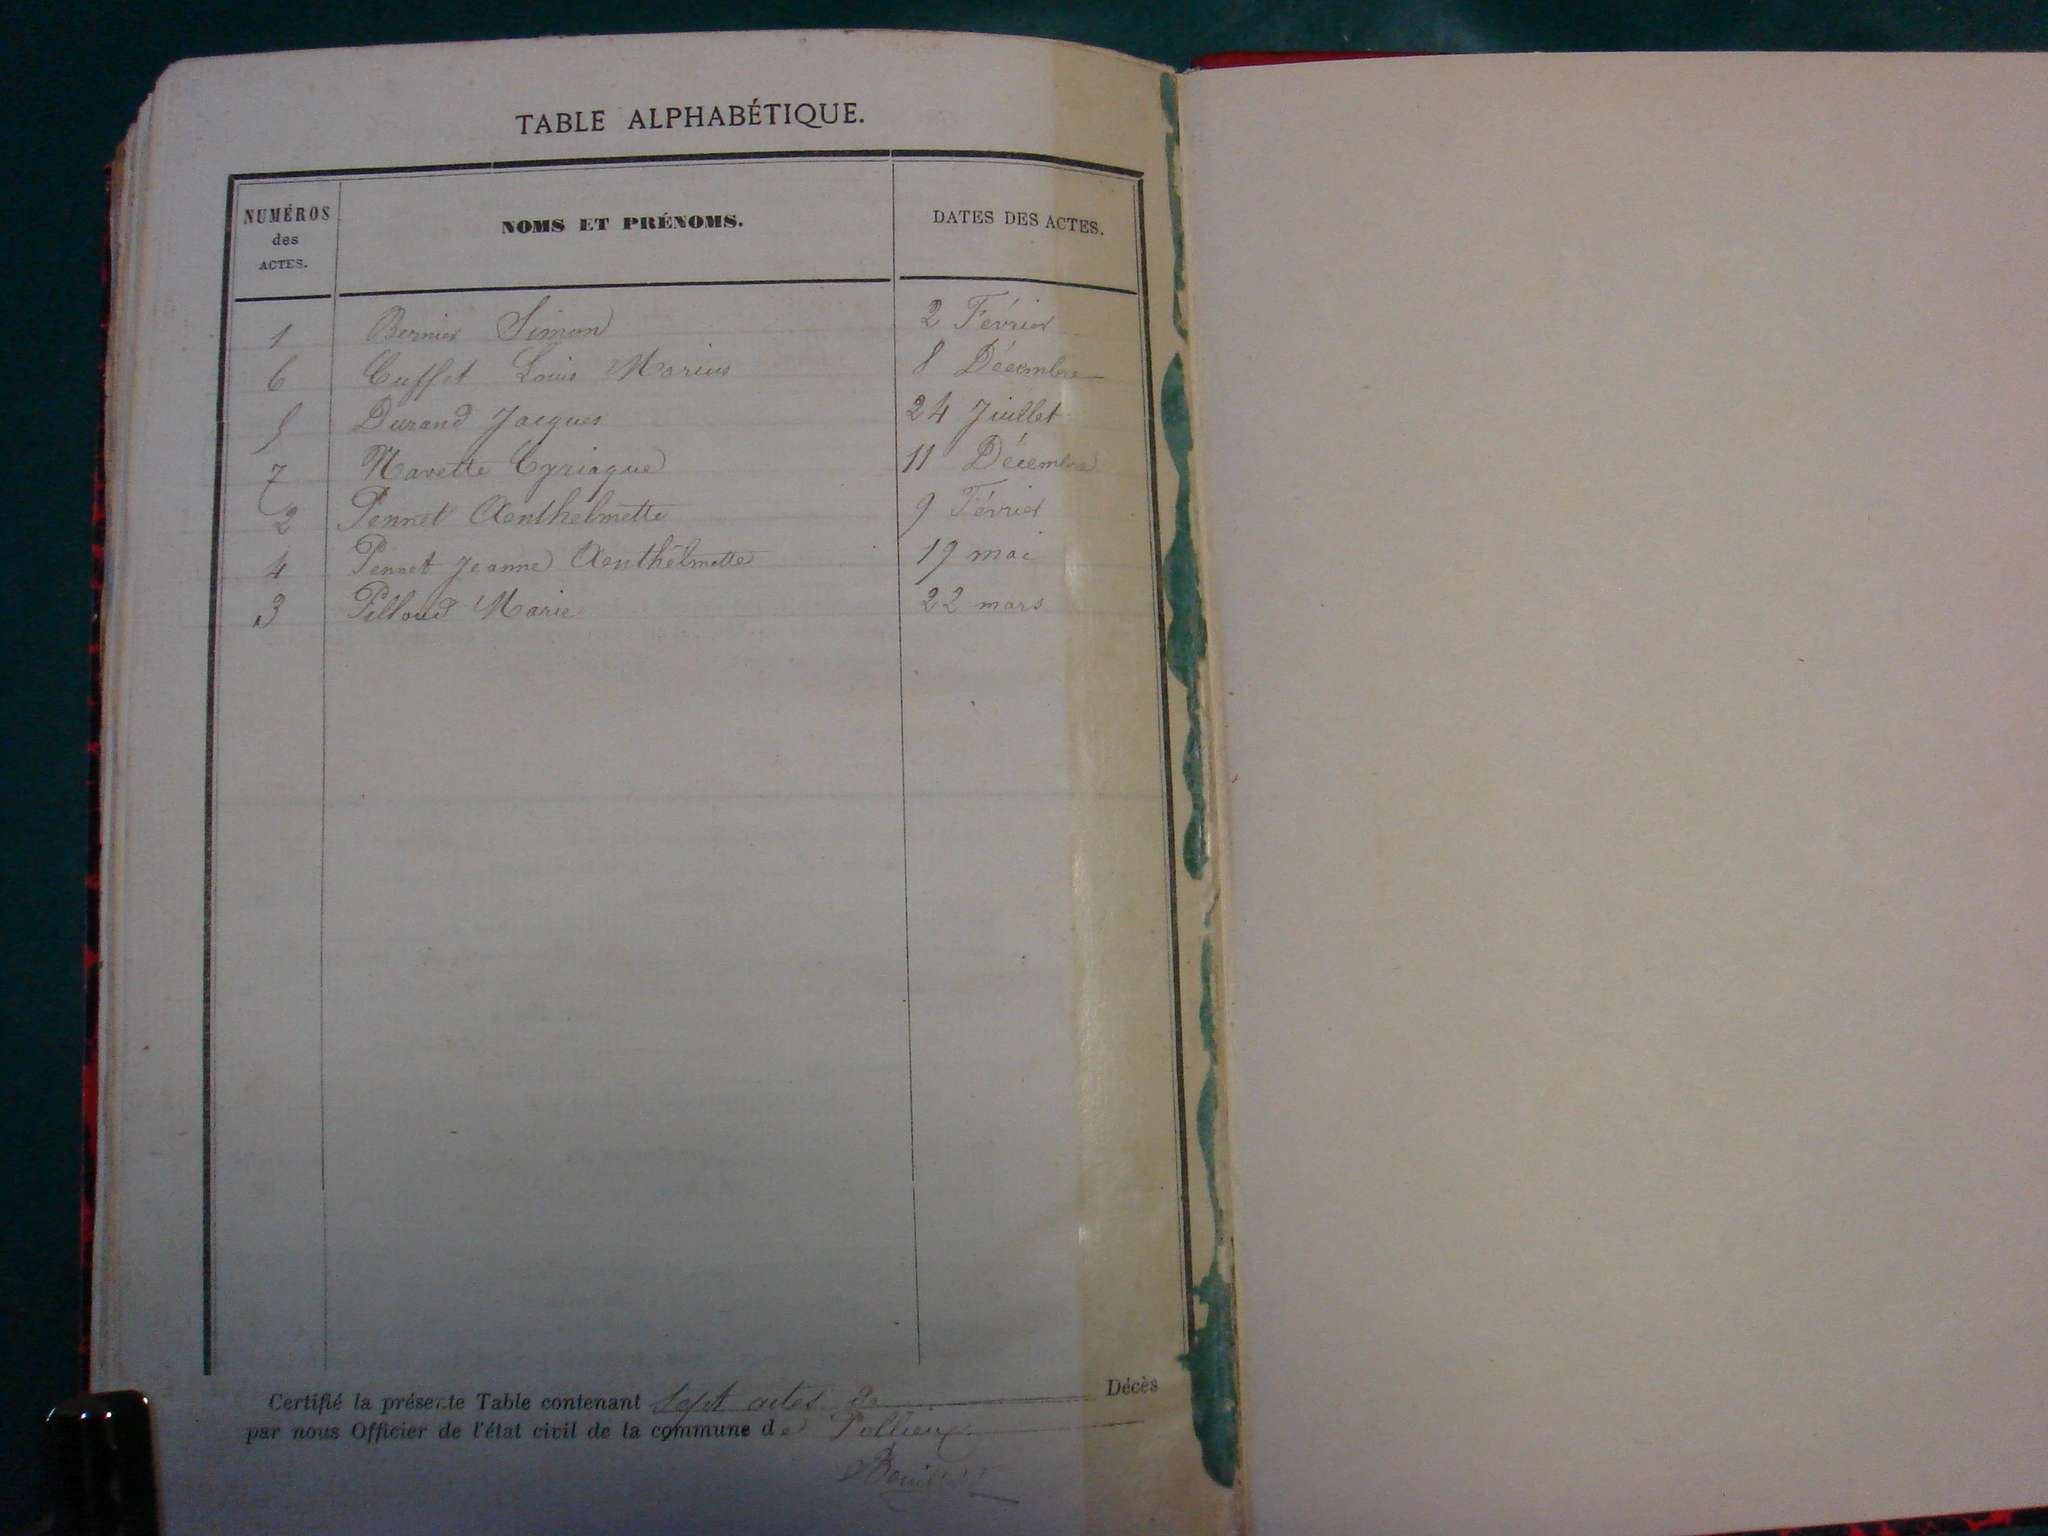 TABLE ALPHABÉTIQUE.
NUMÉROS des ACTES. NOMS ET PRÉNOMS. DATES DES ACTES.
1 Bernier Simon 2 Février
6 Cuffet Louis Marius 8 Décembre
5 Durand Jacques 24 Juillet
7 Navette Cyriaque 11 Décembre
2 Pennet Anthelmette 9 Février
4 Pennet Jeanne Anthelmette 19 mai
3 Pilloud Marie 22 mars
Certifié la présente Table contenant sept actes de Décès
par nous Officier de l'état civil de la commune de Pollieux